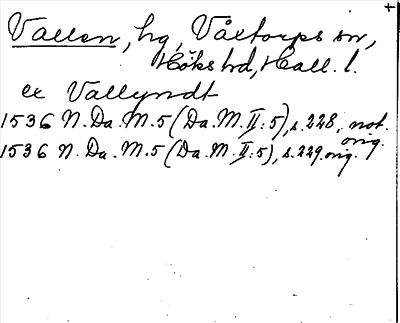 +
Vallen, hg, Våxtorps sn,
Höks hd, Hall. l.
ae Vallyndt
1536 N. Da. M. 5 (Da. M. II: 5), s. 228, not.
orig.
1536 N. Da. M. 5 (Da. M. II: 5), s. 229 orig.